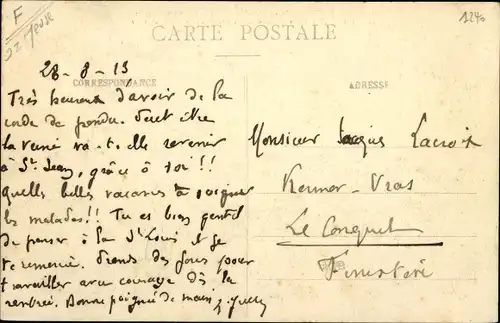 F
55 Meuse
124
CARTE POSTALE
28-8-13
CORRESPONDANCE
ADRESSE
Très heureux d'avoir de la
corde de pendu. Peut être
la veine va-t-elle revenir
à St Jean, grâce à toi!!!
Quelles belles vacances à soigner
les malades!! Tu es bien gentil
de penser à la St Louis et je
te remercie. Prends des forces pour
travailler avec courage dès la
rentrée. Bonne poignée de main
Monsieur Jacques Lacroix
Kermor-Vras
Le Conquet
Finistère